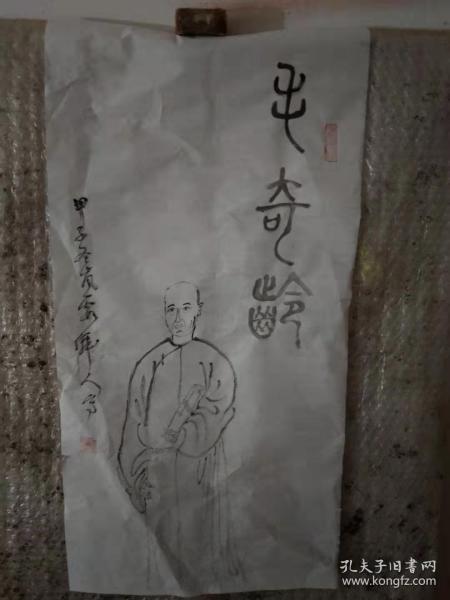 毛奇齡
甲子冬月
人写
孔夫子旧书网
www.kongfz.com